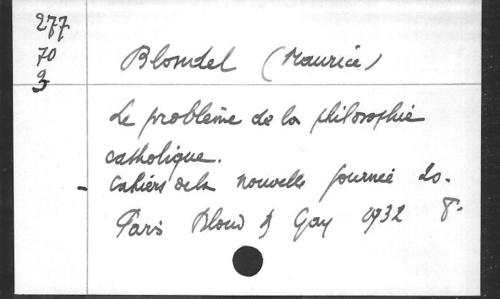 277
70
3
Blondel (Maurice)
Le problème de la philosophie
catholique.
- Cahiers de la nouvelle journée 20.
Paris Bloud & Gay 1932 8°